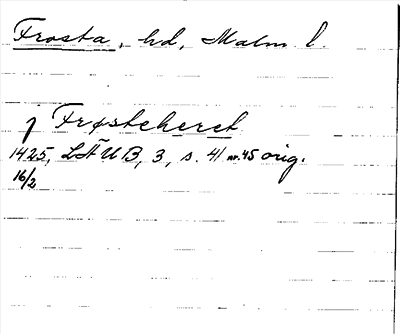 Frosta, hd, Malm l.
j Frøsteheret
1425, LÄUB, 3, s. 41 nr. 45 orig.
16/2